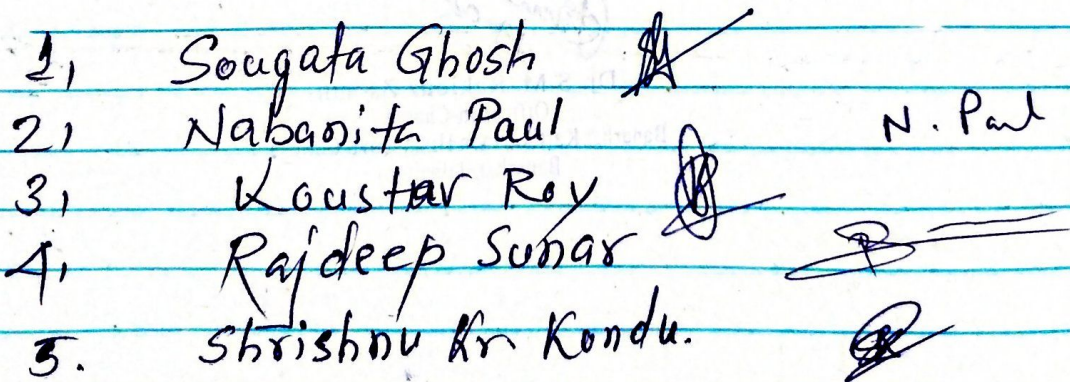 1, Sougata Ghosh
2, Nabanita Paul N. Paul
3, Koustav Roy
4, Rajdeep Sunar
5. Shrishnu Kr Kondu.